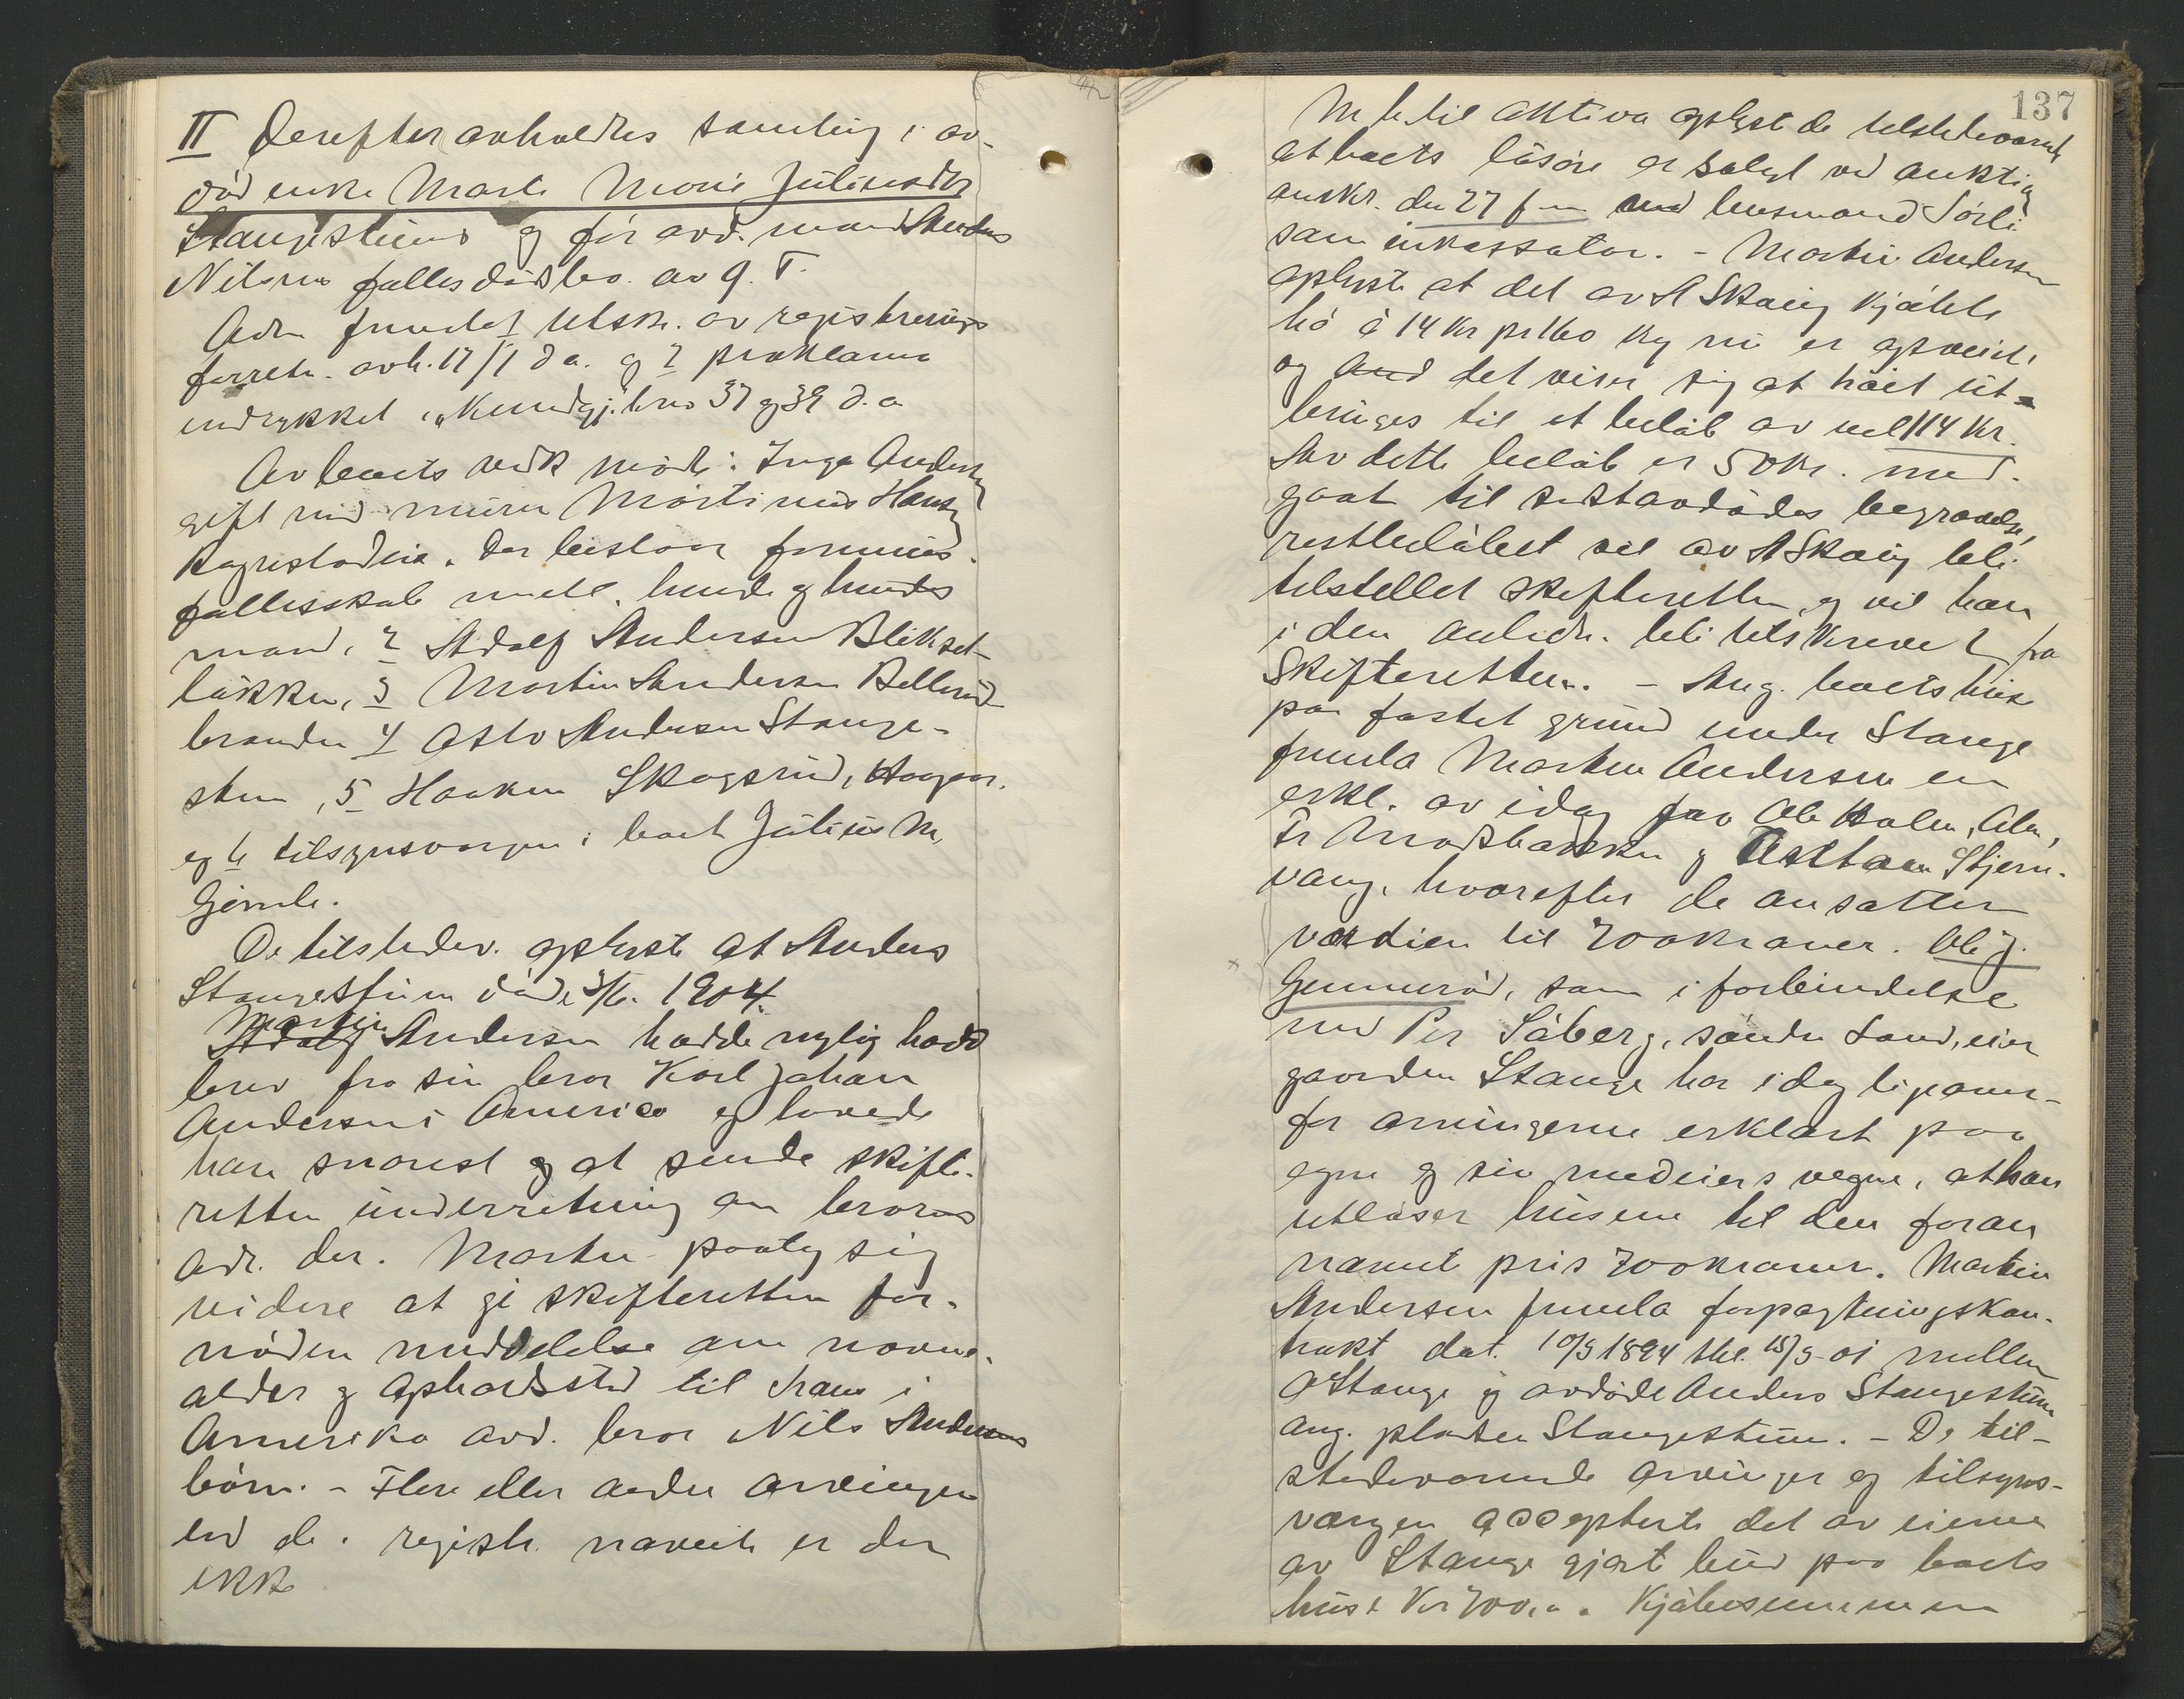 II Derefter avholdtes samling i av-
död enke Marte Marie Juliusdtr
Stangestuens og för avd. mand Anders
Nilsens fælles dödsbo. av 9. T.
Adm fremla 1 utskr. av registrerings
forretn. avh. 17/1 d a. og 2 proklama
indrykket i "Kundgj." brno 37 og 39 d.a
Av boets vedk mötte: Inga Andersen
gift med murer Martinius Hansen
Kagestadeie. der bestaar formues-
fællesskab mell. hende og hendes
mand, 2 Adolf Andersen Blikset-
lökken, 3 Martin Andersen Bellerud-
branden 4 Oslo Andersen Stange-
stuen, 5 Haakon Skogsrud, Haagaar.
og 6 tilsynsvergen i boet Julius M.
Gimle.
De tilstedev. oplyste at Anders
Stangestuen döde 3/6. 1904.
Martin Andersen hadde nylig hadt
brev fra sin bror Karl Johan
Andersen i America og lovede
han snarest og at sende skifte-
retten underretning om brorens
adr. der. Martin paatog sig
videre at gi skifteretten for-
nöden meddelelse om navne,
alder og opholdssted til hans i
Amerika avd. bror Nils Andersens
börn. - Flere eller andre arvinger
end de i registr. nævnte er der
ikke
137
M. h. til aktiva oplyste de tilstedeværende
at boets lösöre er solgt ved auktion
auskr. den 27 f m med lensmand Sörli
som inkassator. - Martin Andersen
oplyste at det av A Skaug kjöbte
hö à 14 Kr pr 160 kg nu er opveiet
og det viser sig at höiet ut-
bringes til et belöb av vel 114 Kr.
Av dette belöb er 50 Kr. med-
gaat til sistavdödes begravelse,
restbelöbet vil av A Skaug bli
tilstellet skifteretten, og vil han
i den anledn. bli tilskrevet fra
Skifteretten. - Ang. boets huse
paa fæstet grund under Stange
fremla Martin Andersen en
erkl. av idag fra Ole Holen, Olen,
Fr Modsbakken og Kristian Stjern-
vang, hvorefter de ansætter
værdien til 700 kroner. Ole J.
Gunneröd, som i forbindelse
med Per Söberg, söndre Land, eier
gaarden Stange har idag ligeover-
for arvingerne erklært paa
egne og sin medeiers vegne, at han
utlöser husene til den foran
nævnt pris 700 kroner. Martin
Andersen fremla forpagtningskon-
trakt dat. 10/9 1894 thl. 15/9-01 mellem
O Stange og avdöde Anders Stangestuen
ang. pladsen Stangestuen. - De til-
stedeværende arvinger og tilsyns-
vergen accepterte det av eierne
av Stange gjort bud paa boets
huse Kr 700,00. Kjöbesummen